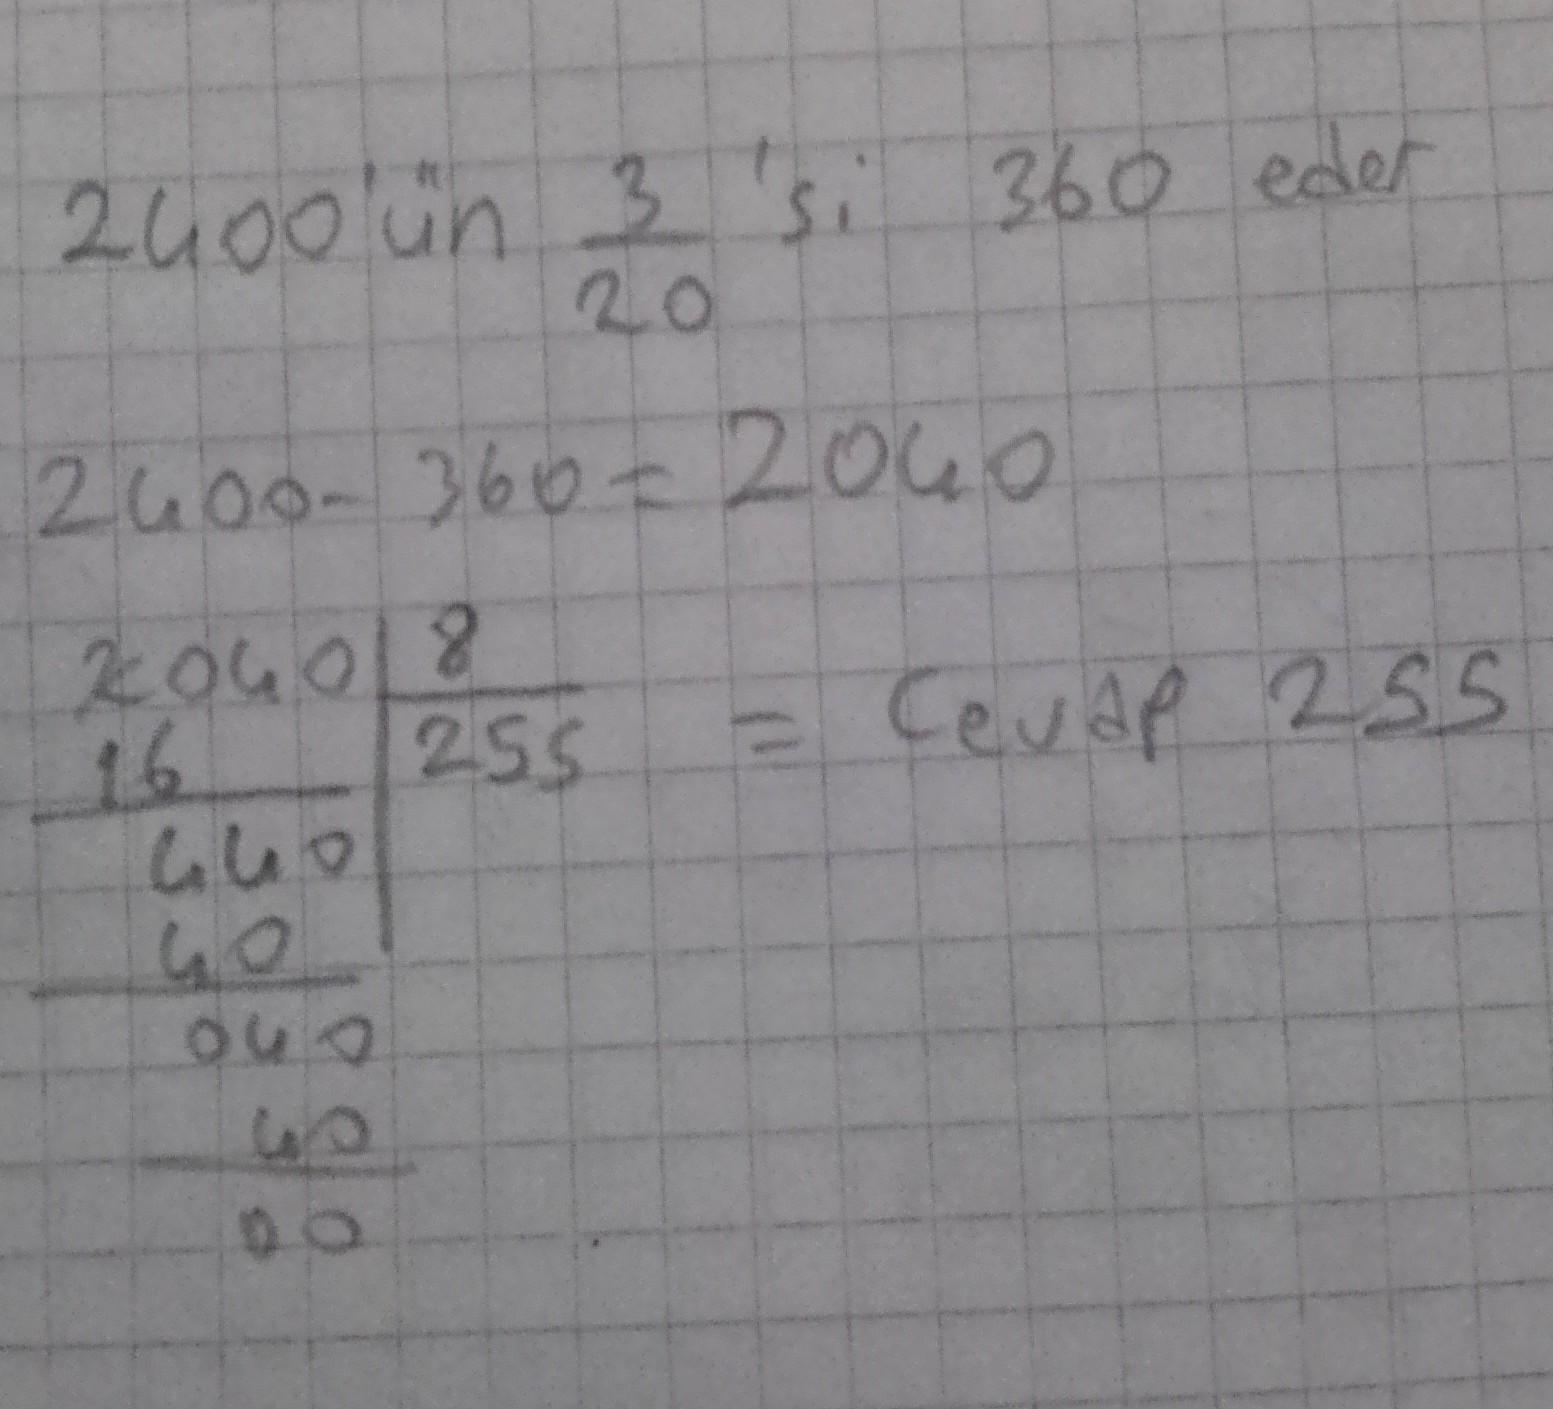 2400'ün 3/20 'si 360 eder
2400 - 360 = 2040
2040 | 8
16 255 = Cevap 255
440
40
040
40
00